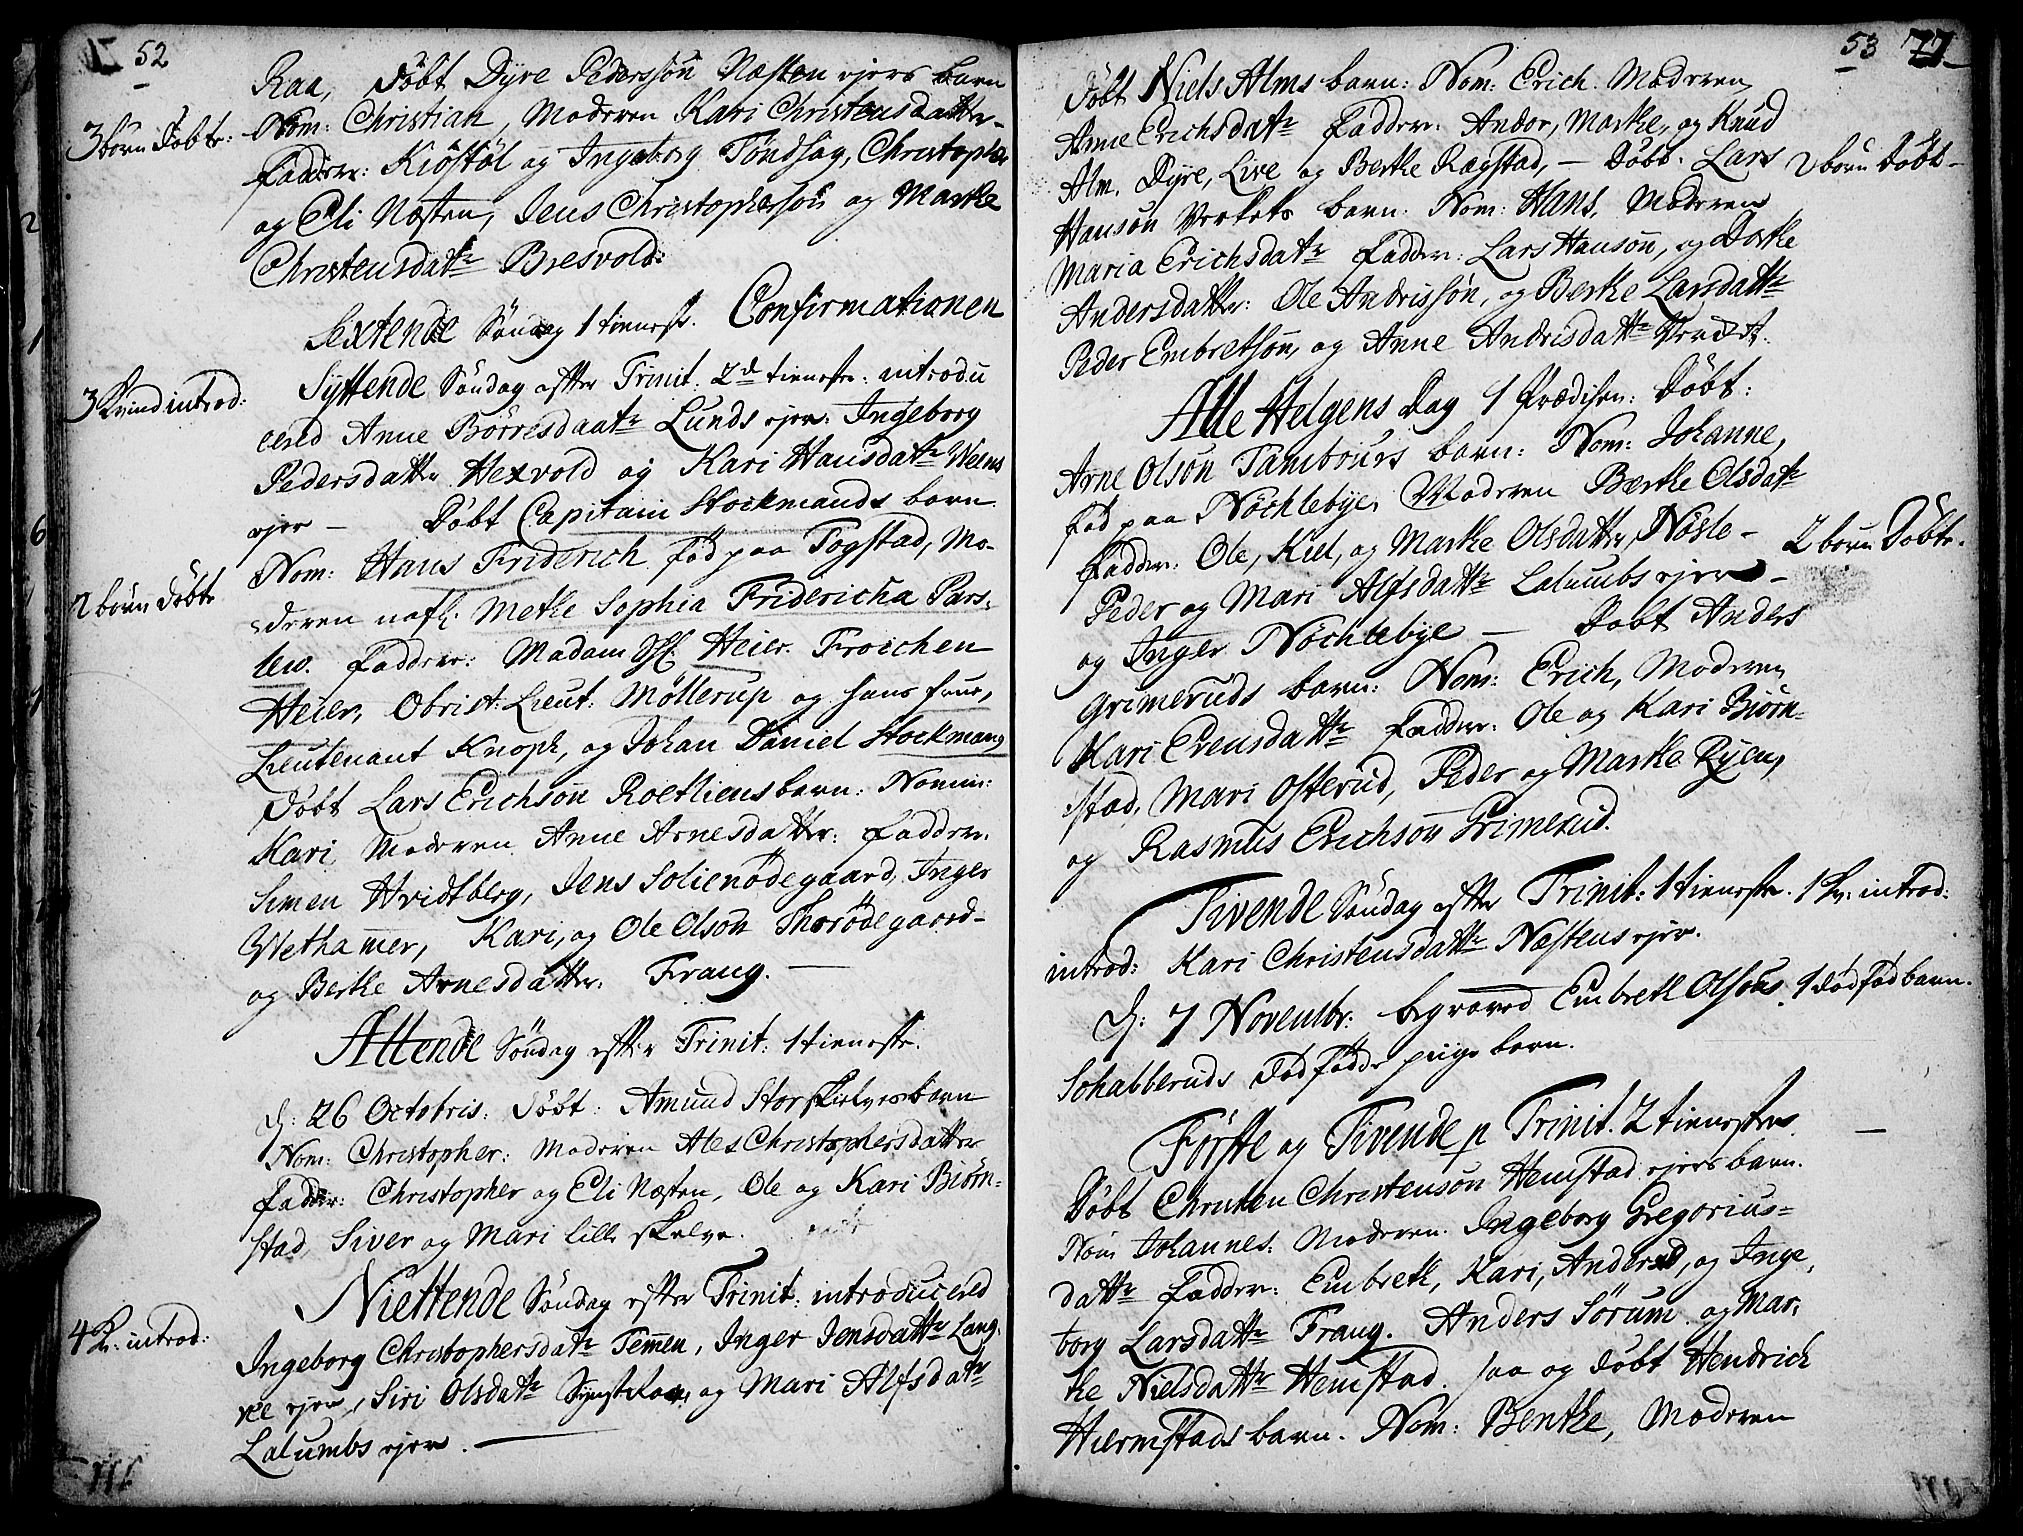 52
Raa, Døbt Dyre Pedersson Næsten ejers barn
3 børn Døbte:
Nom: Christian, Moderen Kari Christensdatter
Faddere: Kiøstøl og Ingeborg Tøndsag, Christopher
og Eli Næsten, Jens Christophersøn og Marthe
Christensdattr Bresvold:
Sextende Søndag 1 tieneste. Confirmationen
3 Kvind introd:
Syttende Søndag efter Trinit. 2d tieneste: introdu
cered Anne Børresdaatr Lunds ejer: Ingeborg
Pedersdatter Hexvold og Kari Hansdatr Weens
ejer — Døbt Capitain Stockmands barn
2 børn døbte
Nom: Hans Friderich, fød paa Togstad, Mo-
deren nafl. Methe Sophia Fridericha Pars-
lew. Faddere: Madam Heier. Froichen
Heier, Obrist: Lieut: Møllerup og hans frue,
Lieutenant Knoph, og Johan Daniel Stockmang
Døbt Lars Erichson Roetliens barn: Nomin:
Kari Moderen Anne Arnesdatter: Faddere:
Simen Hvidtberg, Jens Solienødegaard, Inger
Wethamer, Kari, og Ole Olson Thorødegaard-
og Berthe Arnesdatter: Fraug. —
Attende Søndag efter Trinit: 1 tieneste.
D: 26 Octobris: Døbt: Amund Storskielves barn
Nom: Christopher: Moderen Ales Christophersdatter
Fadder: Christopher og Eli Næsten, Ole og Kari Biørn-
stad, Siver og Mari lille skelve.
Niettende Søndag efter Trinit: introducered
4 K: introd:
Ingeborg Christophersdatr Temen, Inger Jensdattr Lang-
ejer, Siri Olsdattr og Mari Alfsdatr
Lalumbs ejer. —
53 77
Døbt Niels Alms barn: Nom: Erich. Moderen
Anne Erichsdatr Fadder: Andor, Marthe, og Knud
Alm. Dyre, Live og Berthe Ragstad, — Døbt. Lars
2 børn Døbt —
Hanson Verkets barn. Nom: Hans, Moderen
Maria Erichsdatr Fadder: Lars Hanson, og Dorthe
Andersdatter: Ole Andrissøn, og Berthe Larsdattr
Peder Embretson, og Anne Andrisdattr
Alle Helgens Dag 1 Prædiken: Døbt:
Arne Olson Tambours barn: Nom: Johanne,
fød paa Nøchlebye, Moderen Berthe Olsdatr
Fadder: Ole, Kiel, og Marthe Olsdatter, Nøsle-
2 børn Døbte.
Peder og Mari Alfsdattr Lalumbs ejer —
og Inger Nøchlebye — Døbt Anders
Grimeruds barn: Nom: Erich, Moderen
Kari Evensdattr Fadder: Ole og Kari Biørn-
stad, Mari Osterud, Peder og Marthe Ryen,
og Rasmus Erichson Grimerud.
Tivende Søndag efter Trinit: 1 tieneste. 1 kv: introd:
introd: Kari Christensdattr Næstens ejer.
D: 7 Novembr: begraved Embrett Olsons
1 dødfød barn.
Sohabberuds Dødfødde pige barn.
Første og Tivende p Trinit. 2 tienesten
Døbt Christen Christensøn Hemstad ejers barn.
Nom Johannes: Moderen. Ingeborg Gregorius-
dattr Fadder: Embreth, Kari, Anders, og Inge,
borg Larsdattr Fraug. Anders Sørum og Mar-
the Nielsdattr Hemstad. saa og døbt Hendrich
Hiermstads barn. Nom: Benthe, Moderen